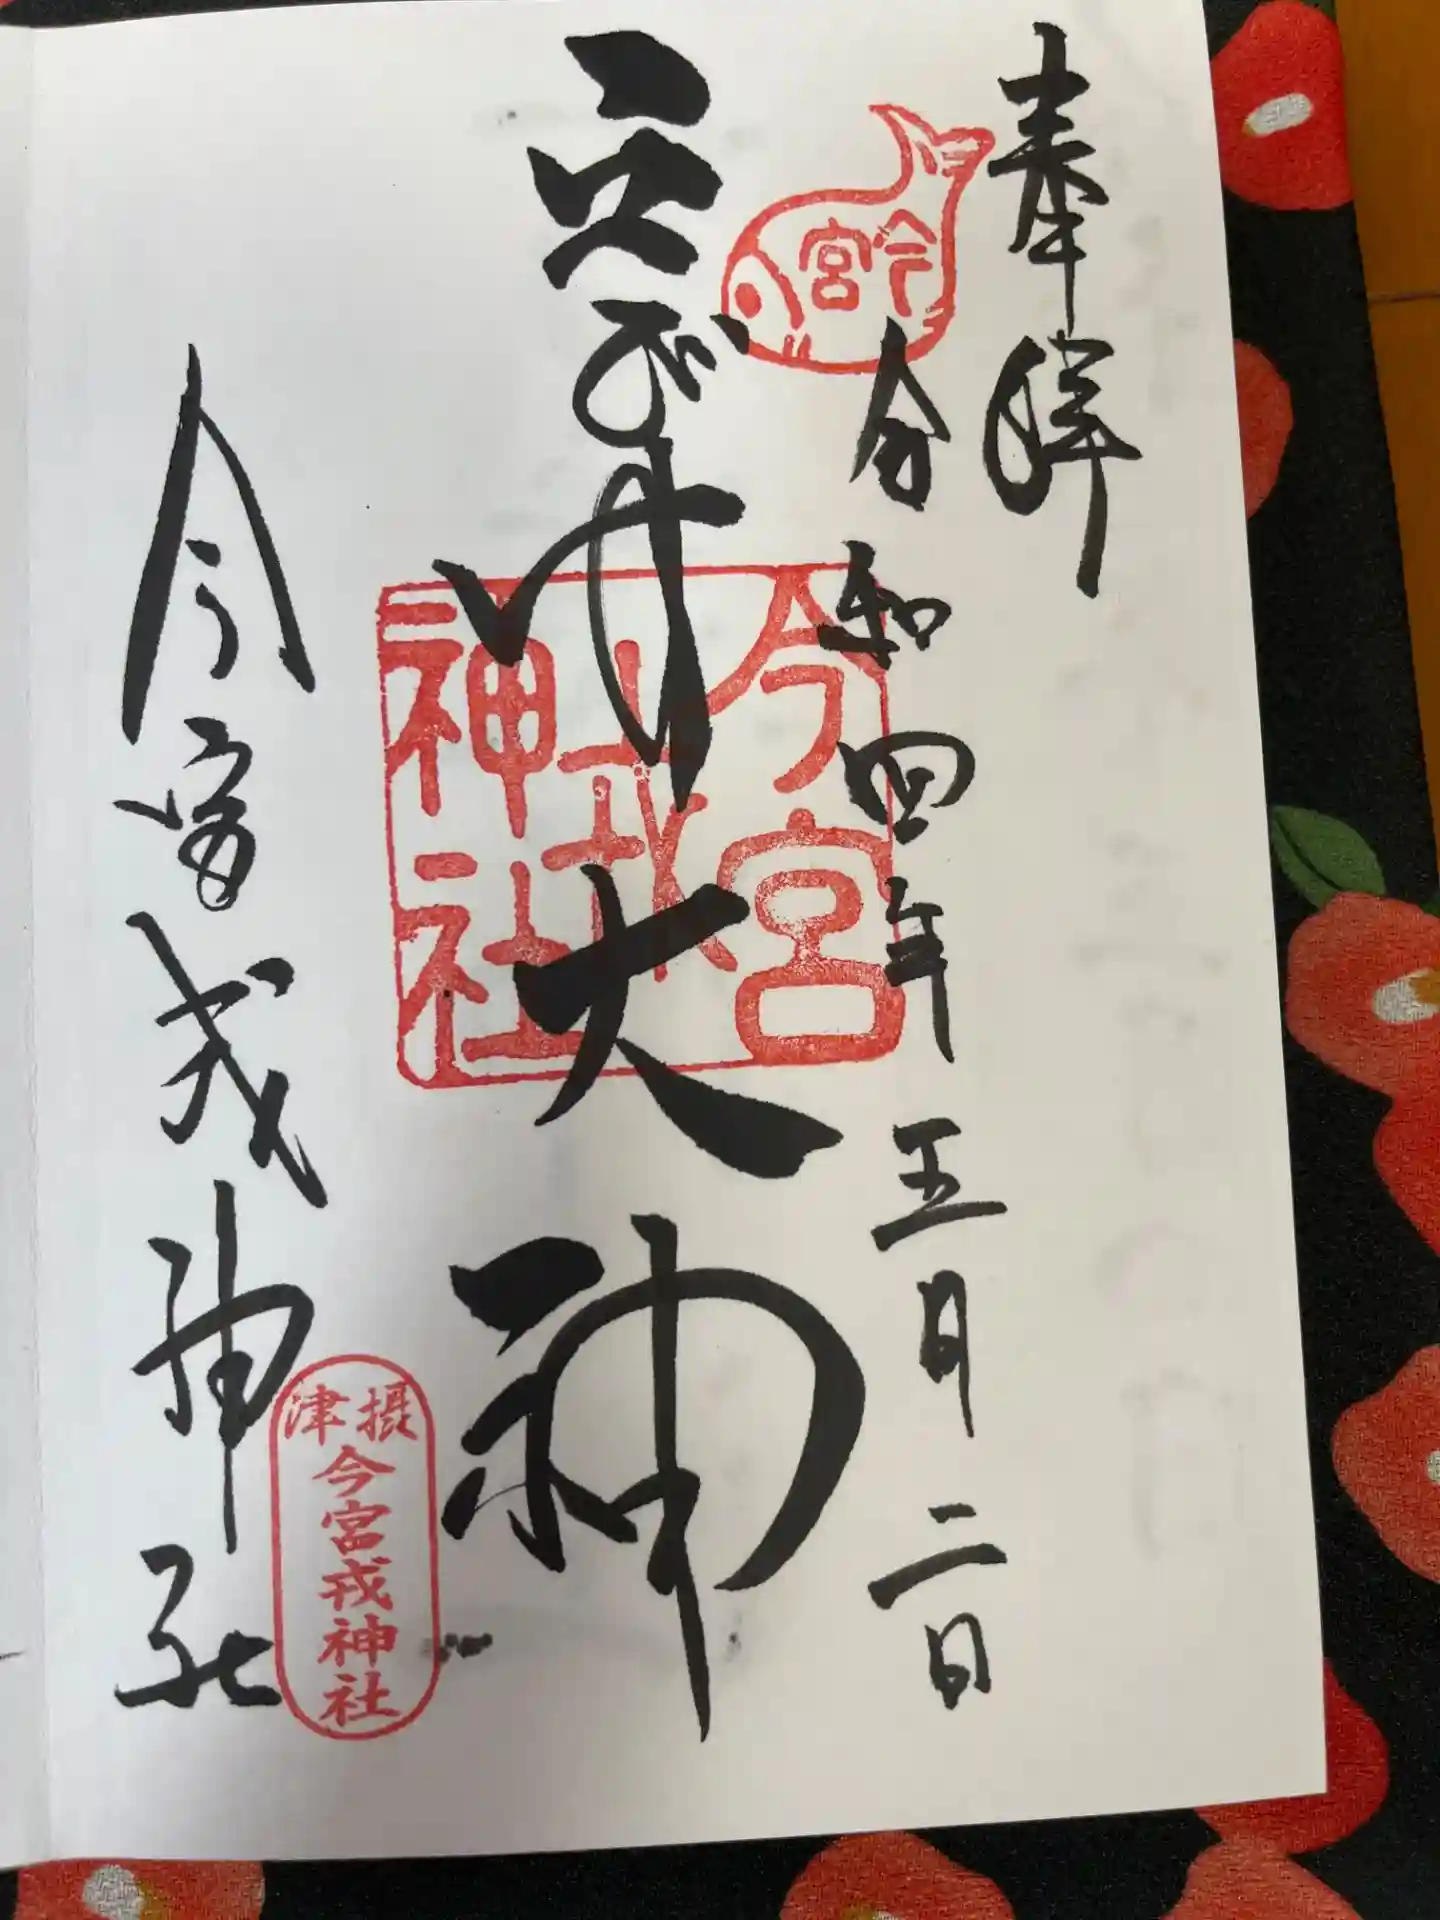 奉拝
今宮
令和四年五月二日
大神
今宮
戎
神社
今宮戎神社
摂津
今宮戎神社